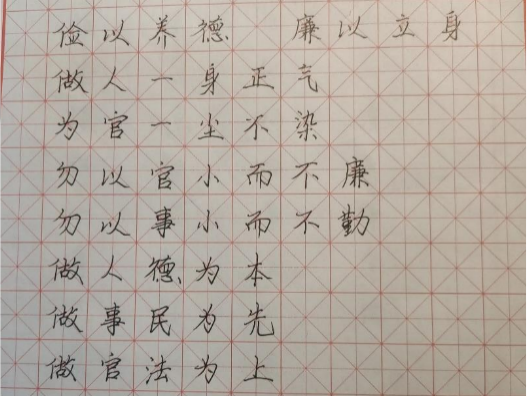 俭以养德 廉以立身
做人一身正气
为官一尘不染
勿以官小而不廉
勿以事小而不勤
做人德为本
做事民为先
做官法为上